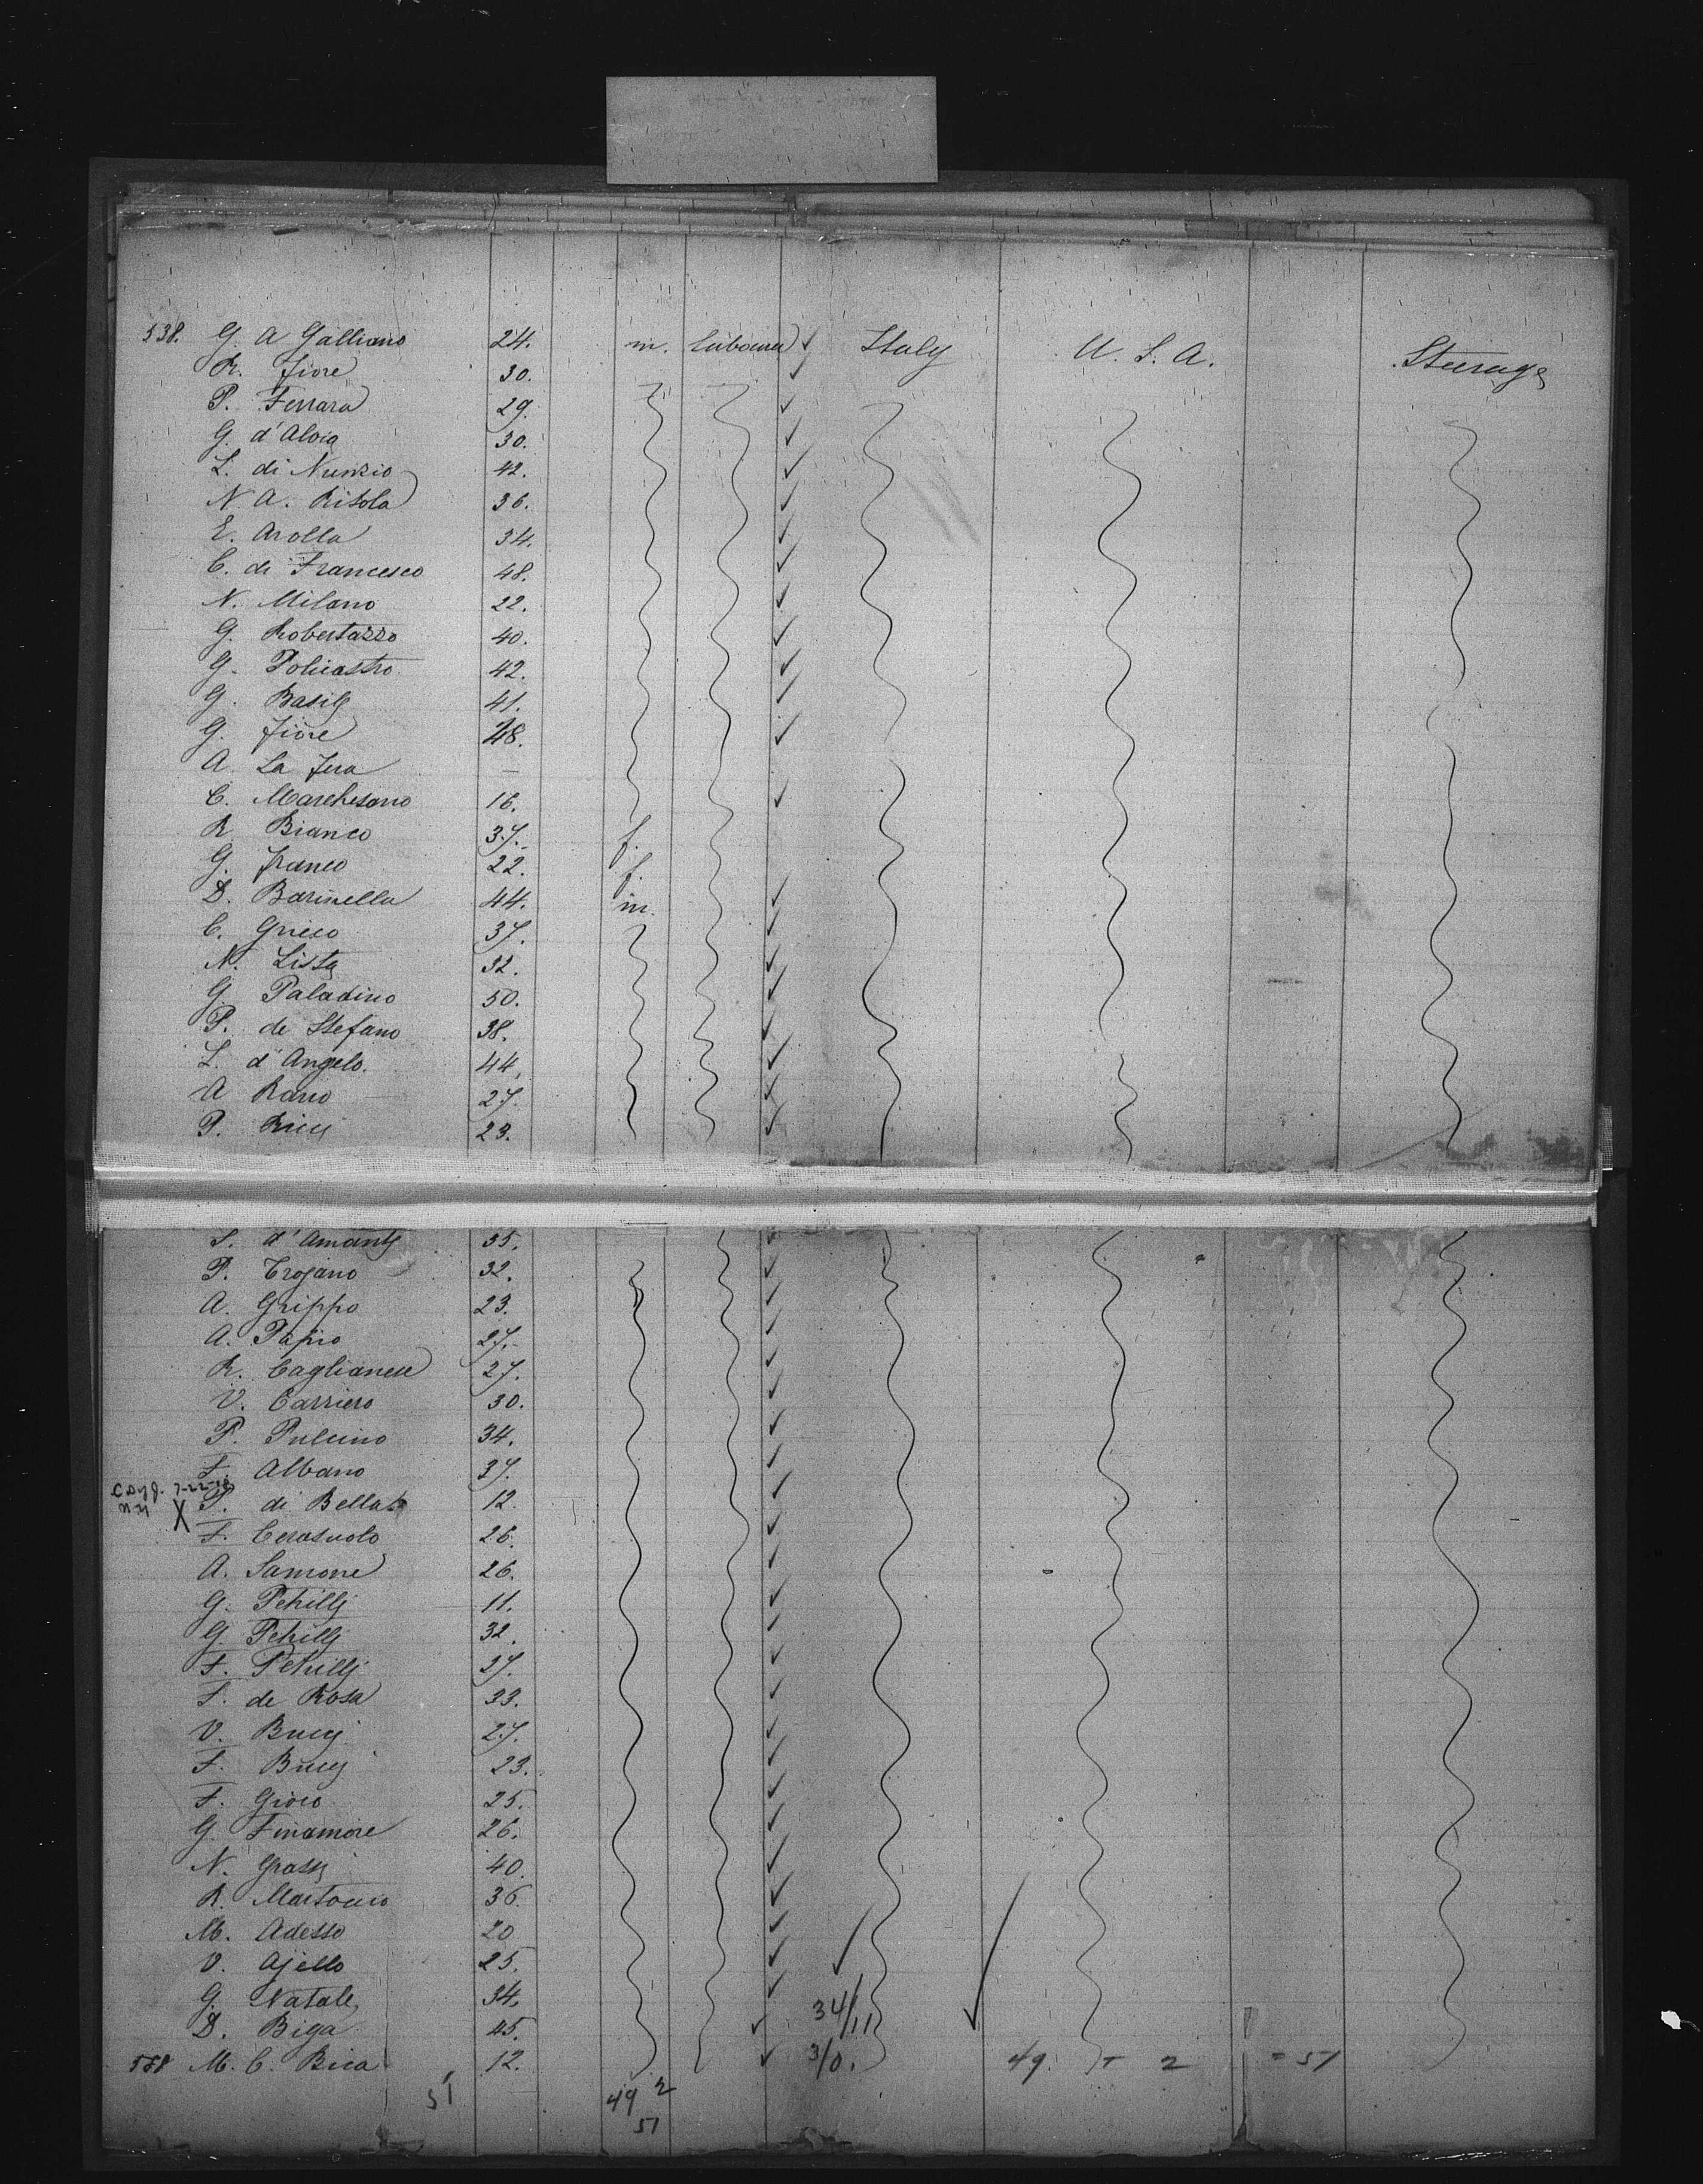 538. G. A Galliano 24. m. labourer ✓ Italy U. S. A. Steerage
R. Fiore 30. ✓
P. Ferrara 29. ✓
G. d'Aloia 30. ✓
L. di Nunzio 42. ✓
N. A. Risola 36. ✓
E. Arolla 34. ✓
C. di Francesco 48. ✓
N. Milano 22. ✓
G. Robertazzo 40. ✓
G. Policastro 42. ✓
G. Basile 41. ✓
G. Fiore 48. ✓
A. La Fera —
C. Marchesano 16. ✓
R. Bianco 37. f.
G. Franco 22. f.
D. Barinella 44. m. ✓
C. Grieco 37. ✓
N. Lista 32. ✓
G. Paladino 50. ✓
P. de Stefano 38. ✓
L. d'Angelo. 44. ✓
A Rano 27. ✓
P. Ricci 23. ✓
S. d'Amante 35. ✓
P. Trojano 32. ✓
A. Grippo 23. ✓
A. Papio 27. ✓
R. Caglianese 27. ✓
V. Carriero 30. ✓
P. Pulcino 34. ✓
F. Albano 37. ✓
X P. di Bella 12. ✓
F. Cerasuolo 26. ✓
A. Samone 26. ✓
G. Petrilli 11. ✓
G. Petrilli 32. ✓
F. Petrilli 27. ✓
S. de Rosa 33. ✓
V. Bucci 27. ✓
F. Bucci 23. ✓
F. Gioio 25. ✓
G. Finamore 26. ✓
N. Grassi 40. ✓
R. Martocco 36. ✓
M. Adesso 20 ✓
V. Ajello 25. ✓
G. Natale 34. ✓ 34/11
D. Biga 45. ✓
588 M. C. Bica 12. ✓ 3/0. 49. + 2 = 51
51 49 2
51